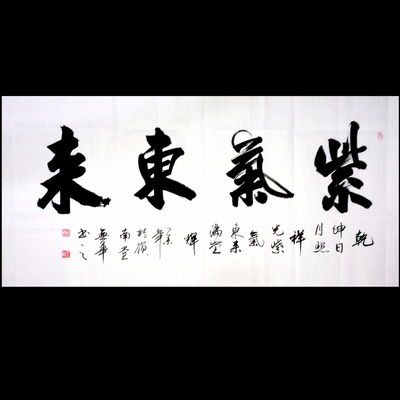 紫氣東来
乾
坤日
月照
祥
光紫
氣
東来
滿堂
輝
年
於嶺
南堂
書之